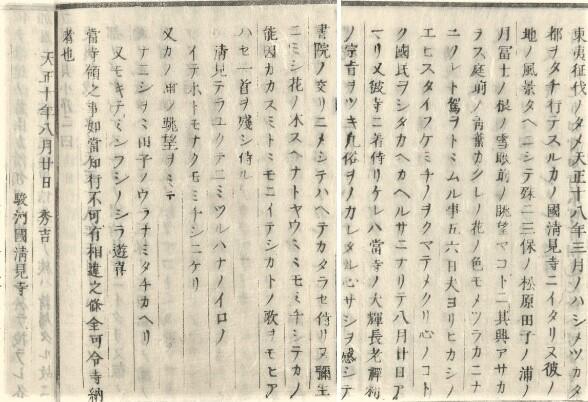 東夷征伐ノタメ天正十八年三月ノハシメツカタ
都ヲタチ行テスルカノ國清見寺ニイタリヌ彼ノ
地ノ風景タヘニシテ殊ニ三保ノ松原田子ノ浦ノ
月富士ノ根ノ雪眼前ノ眺望マコトニ其興アサカ
ラス庭前ノ青葉カクレノ花ノ色モメツラカニナ
ニクレト駕ヲトヽムル事五六日夫ヨリヒカシノ
エヒスタイフケミチノヲクマテメクリ心ノコト
ク國民ヲシタカヘカヘルサニナリテ八月廿日ア
マリ又彼寺ニ着侍リケレハ當寺ノ大輝長老禪
ノ宗旨ヲツキ凡俗ヲノカレタル心サシヲ感シテ
書院ノ交リニメシテハヘテカタラセ侍リヌ彌生
ニミシ花ノ木スヘナトヤウ
ミモミチシテカノ
能因カカスミトトモニイテシカトノ歌ヲモヒア
ハセ一首ヲ殘シ侍ル
清見テラユクテニミツルハナノイロノ
イク
ホトモナクモミチシニケリ
又カノ
浦ノ眺望ヲミテ
ナニシヲ
ミ田子ノウラナミタチカヘリ
又モキテミンフシノシラ遊喜
當寺領之事如當知行不可有相違之條全可令寺納
者也
天正十年八月廿日　秀吉
駿河國清見寺